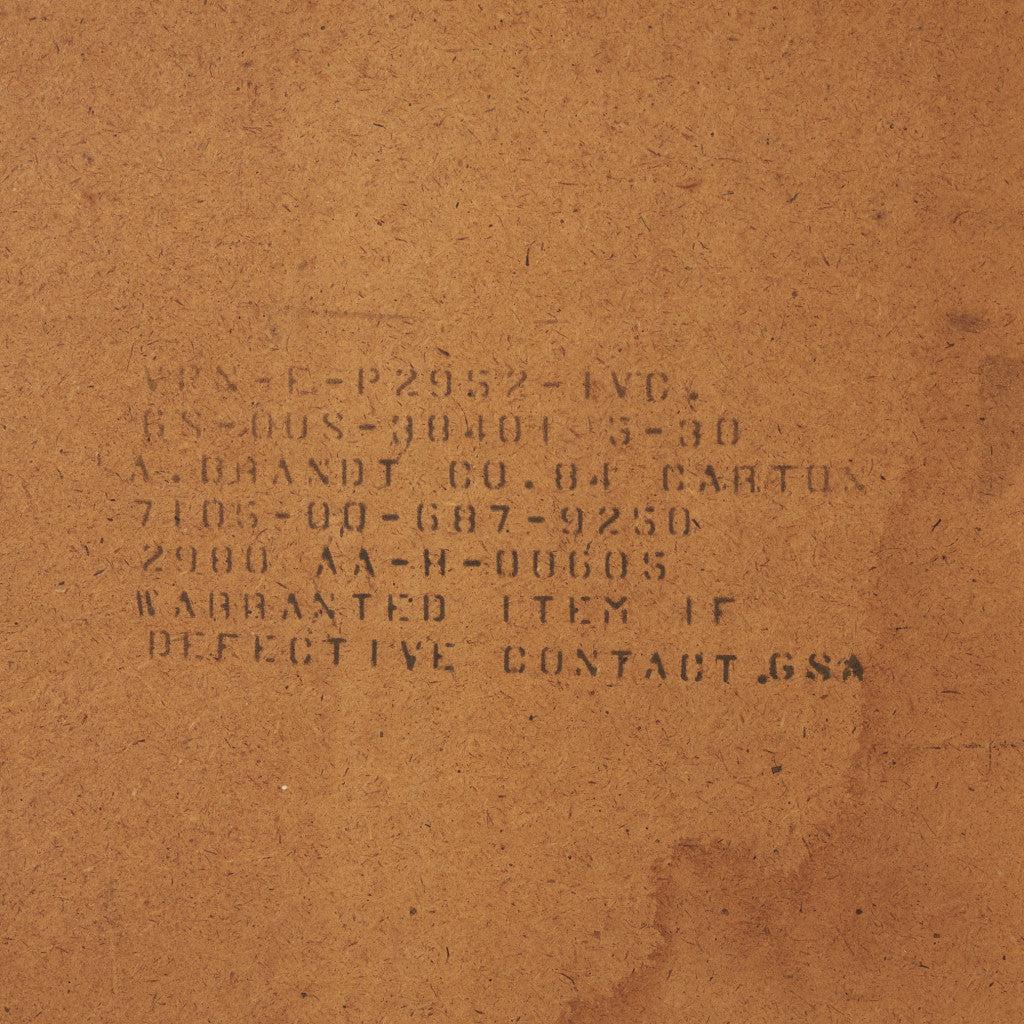 VRN-E-P2952-IVC.
GS-00S-38401 5-30
A.BRANDT CO.84 CARTON
7105-00-687-9250
2980 AA-H-00605
WARRANTED ITEM IF
DEFECTIVE CONTACT.GSA